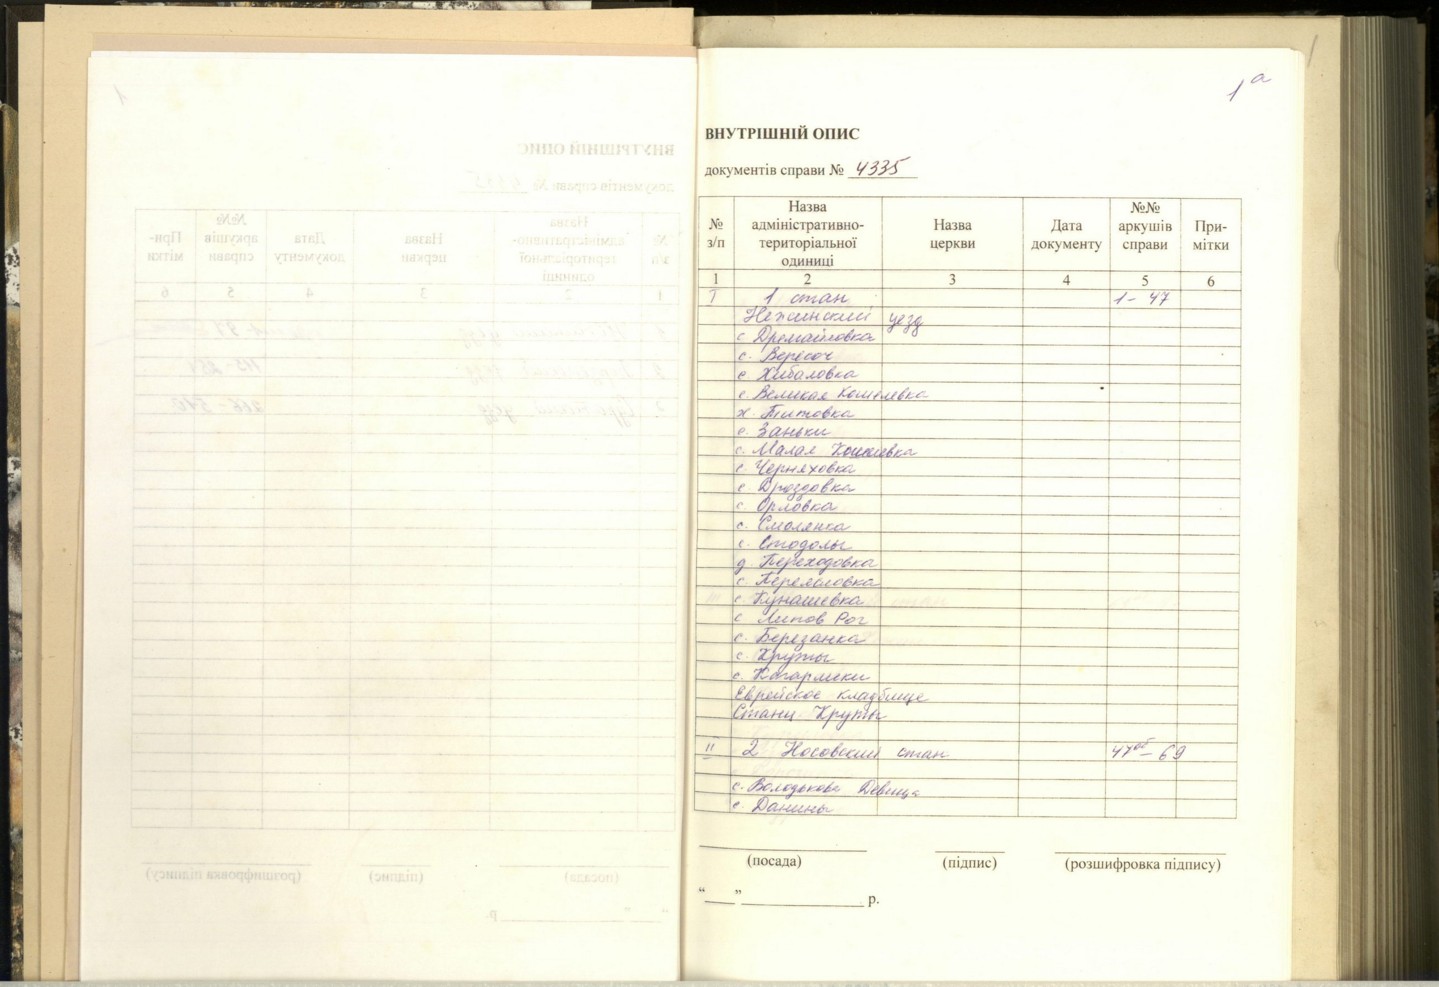 1а
ВНУТРІШНІЙ ОПИС
документів справи № 4335
№ з/п
Назва адміністративно-територіальної одиниці
Назва церкви
Дата документу
№№ аркушів справи
Примітки
1 2 3 4 5 6
I 1 стан 1 - 47
Нежинский уезд
с. Дремайловка
с. Вересоч
с. Хибаловка
с. Великая Кошелевка
х. Титовка
с. Заньки
с. Малая Кошелевка
с. Черняховка
с. Дроздовка
с. Орловка
с. Смолянка
с. Стодолы
д. Переходовка
с. Перемоловка
с. Кунашевка
с. Липов Рог
с. Березанка
с. Круты
с.
Еврейское кладбище
Станц. Круты
II 2 Носовский стан 47об - 69
с. Володькова Девица
с. Данины
(посада) (підпис) (розшифровка підпису)
“___” ______________ р.